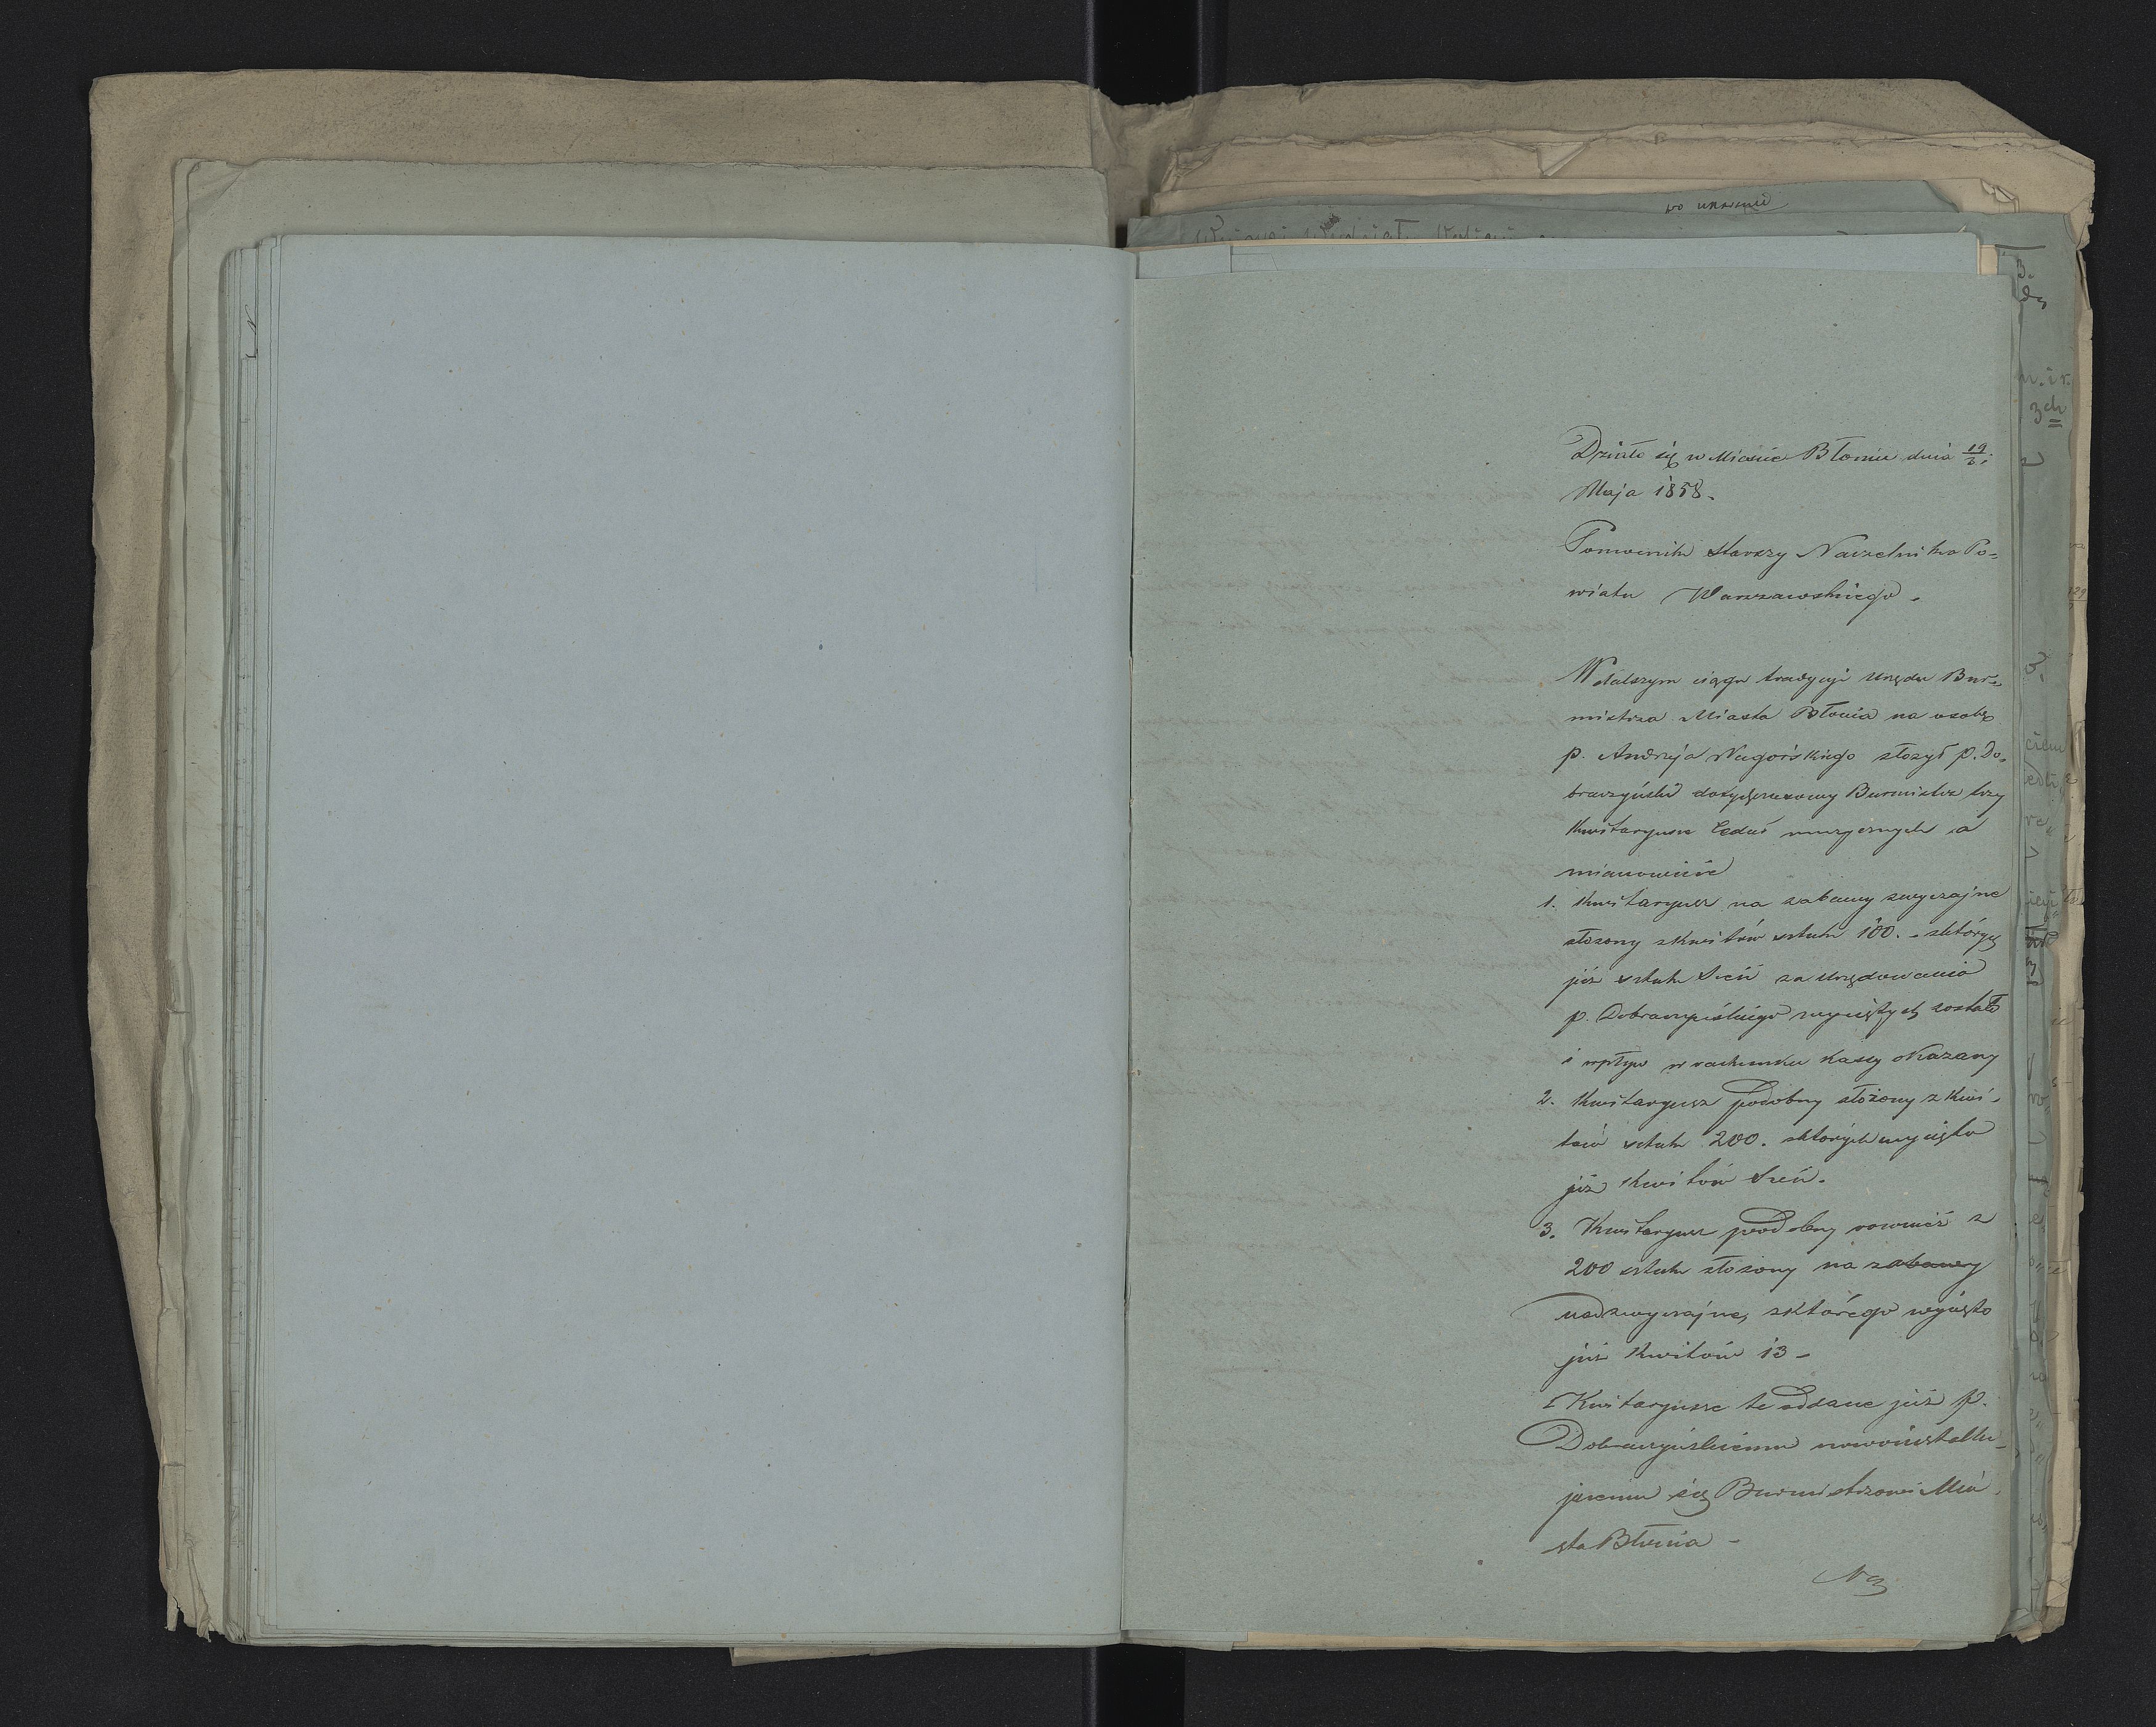 Działo się w Mieście Błoniu dnia 19/31
Maja 1858.
Pomocnik Starszy Naczelnika Po-
wiatu Warszawskiego.
W dalszym ciągu tradycyi Urzędu Bur-
mistrza Miasta Błonia na osobę
p. Andrzeja Nagórskiego złożył p. Do-
braczyński dotychczasowy Burmistrz trzy
Kwitaryusze muzycznych a
mianowicie
1. Kwitaryusz na zabawy zwyczajne
złożony z kwitów sztuk 100. z których
już sztuk za Urzędowania
p. Dobraczyńskiego wyciętych zostało
i wpływ w rachunku Kassy okazany
2. Kwitaryusz podobny złożony z Kwi-
tów sztuk 200. z których wycięto
już Kwitów
3. Kwitaryusz podobny również z
200 sztuk złożony na zabawy
nadzwyczajne, z którego wycięto
już Kwitów 13 -
Kwitaryusze te oddane już p.
Dobraczyńskiemu nowoinstallu-
jącemu się Burmistrzowi Mia-
sta Błonia -
Na